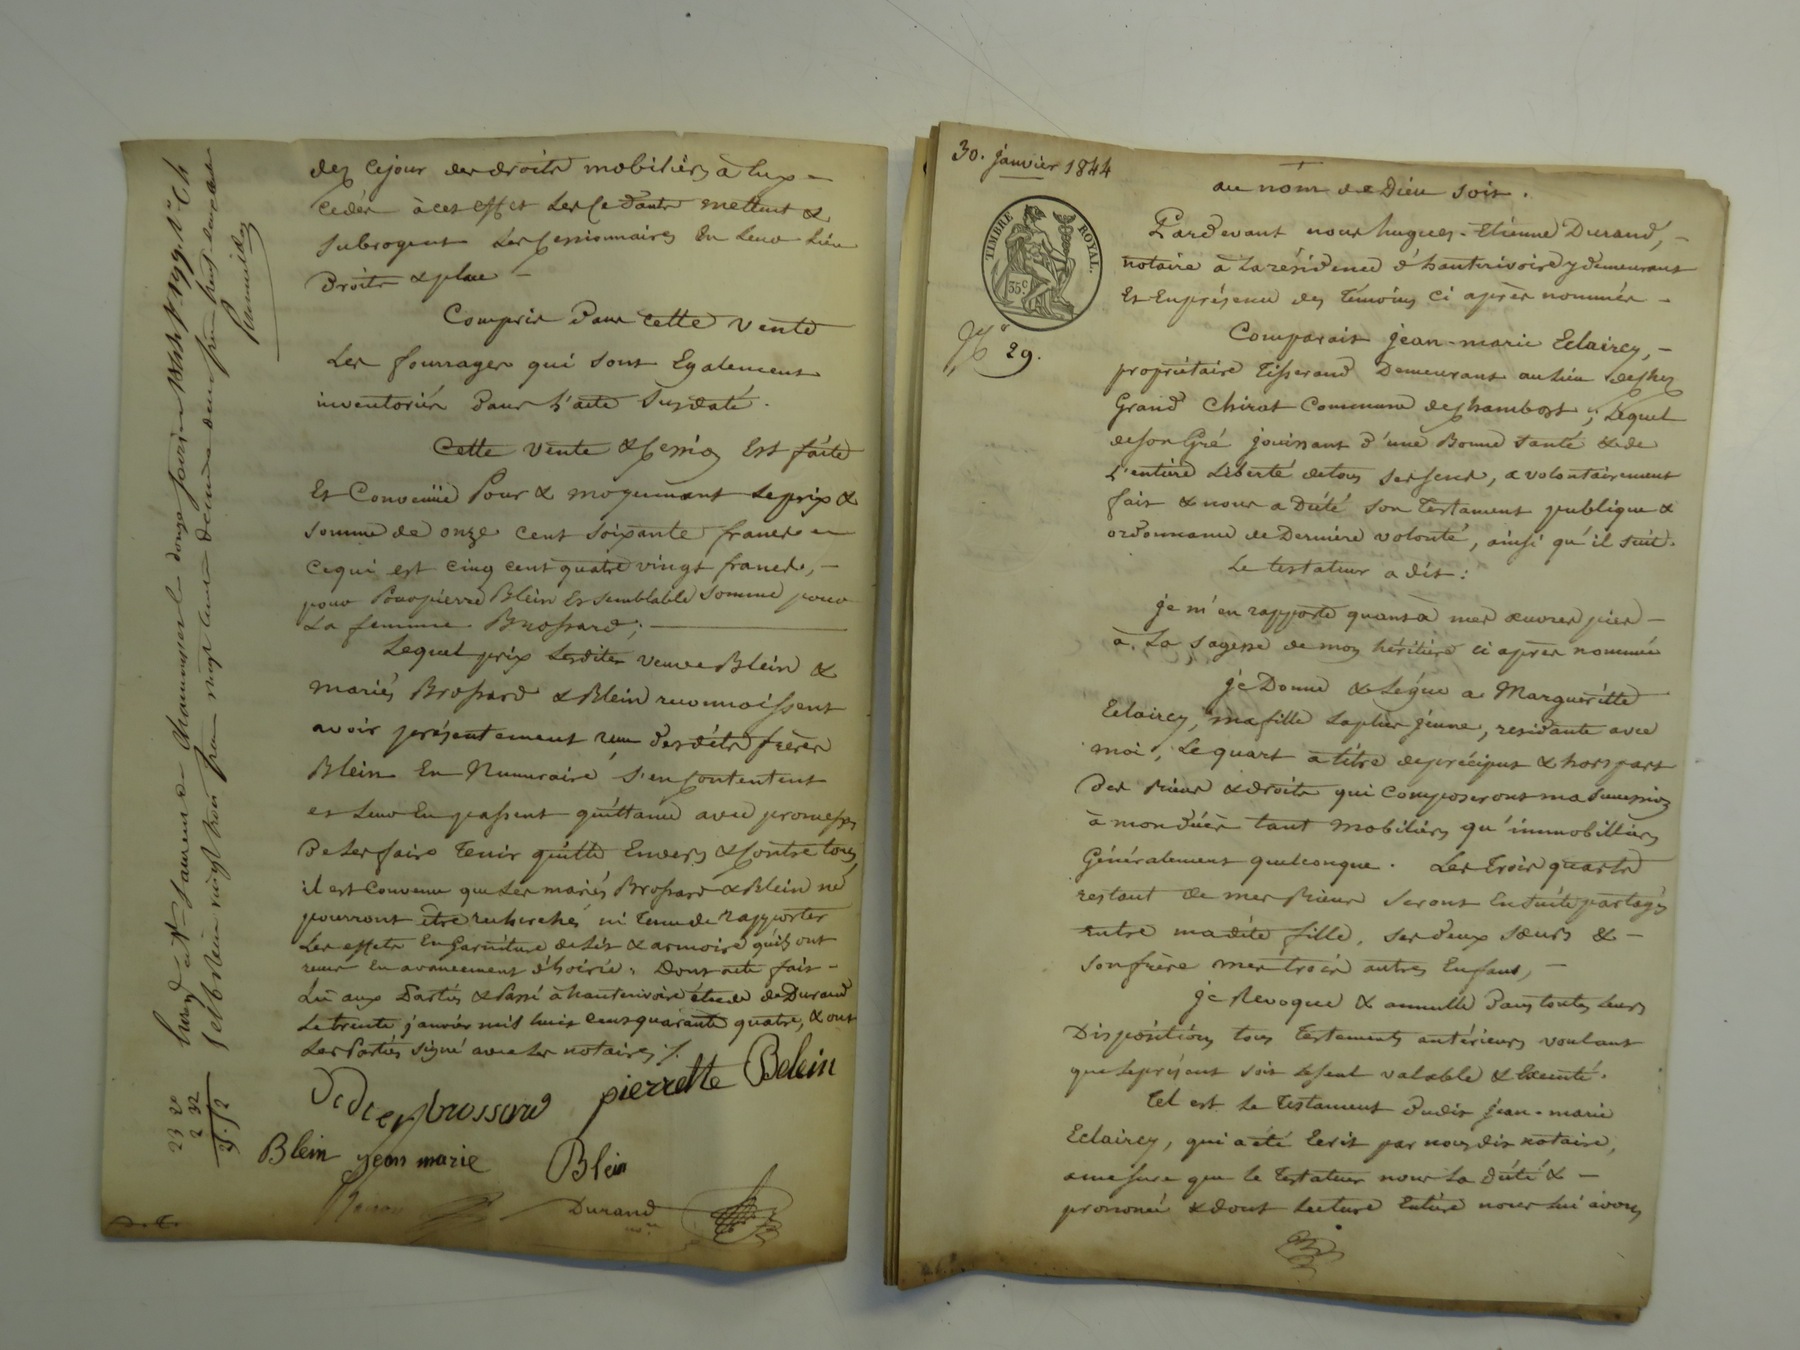 dès ce jour des droits mobiliers à eux
cédés à cet effet les Cédants mettent &
subrogent les Cessionnaires En Leur Lieu
Droits & place –
Compris Dans Cette vente
Les fourrages qui sont Egalement
inventoriés Dans L'acte susdaté.
Cette vente & Cession Est faite
Et Convenüe Pour & moyennant Le prix &
somme de onze cent soixante francs
Ce qui est cinq cent quatre vingt francs, –
pour Pierre Blein Et semblable somme pour
La femme Brossard;
Lequel prix Lesdites veuve Blein &
mariés Brossard & Blein reconnoissent
avoir présentement reçu desdits frères
Blein En Numeraire, s'en Contentent
et Leur En passent quittance avec promesse
De Les faire Tenir quitte Envers & Contre tous
il est Convenu que Les mariés Brossard & Blein ne
pourront être recherchés ni Tenu de Rapporter
Les effets En Garniture de Lit & armoire qu'ils ont
reçus En avancement d'hoirie. Dont acte fait –
Lu aux Parties & Passé à hauterivoire étude de Durand
Le trente janvier mil huit cent quarante quatre, & ont
Les Parties signé avec Les notaires ./.
Didier brossard pierrette Belein
Blein jean marie Blein
Durand
nore
Enregé à St Laurent de Chamousset le douze
febvrier vingt trois francs vingt
23 20
2 32
25.52
30. janvier 1844
TIMBRE ROYAL.
35 c
No 29.
au nom de Dieu soit.
Pardevant nous hugues-Etienne Durand, –
notaire à La résidence d'hauterivoire y demeurant
Et En présence des Témoins ci après nommés –
Comparait jean-marie Eclaircy, –
propriétaire Tisserand Demeurant au Lieu de chez
Grand Chirat Commune de chambost; Lequel
de son Gré jouissant d'une Bonne santé & de
L'entière Liberté de tous ses sens, a volontairement
fait & nous a Dicté son Testament publique &
ordonnance de Dernière volonté, ainsi qu'il suit.
Le testateur a dit:
je m'en rapporte quant à mes œuvres pies –
à La sagesse de mon héritière ci après nommée
je Donne & Legue a Margueritte
Eclaircy, ma fille La plus jeune, residante avec
moi, Le quart à titre de préciput & hors part
Des Biens & droits qui Composeront ma Succession
à mon décès tant mobiliers qu'immobilliers
Généralement quelconque. Les Trois quarts
restant de mes Biens seront Ensuite partagés
entre madite fille, ses deux sœurs & –
son frère mes trois autres Enfans, –
je Revoque & annulle Dans toutes Leurs
Dispositions tous Testaments antérieurs voulant
que Le présent soit Le seul valable & Executé.
Tel est Le Testament Dudit jean-marie
Eclaircy, qui a été Ecrit par nousdit notaire,
a mesure que le Testateur nous La Dicté & –
prononcé & dont Lecture Entière nous lui avons